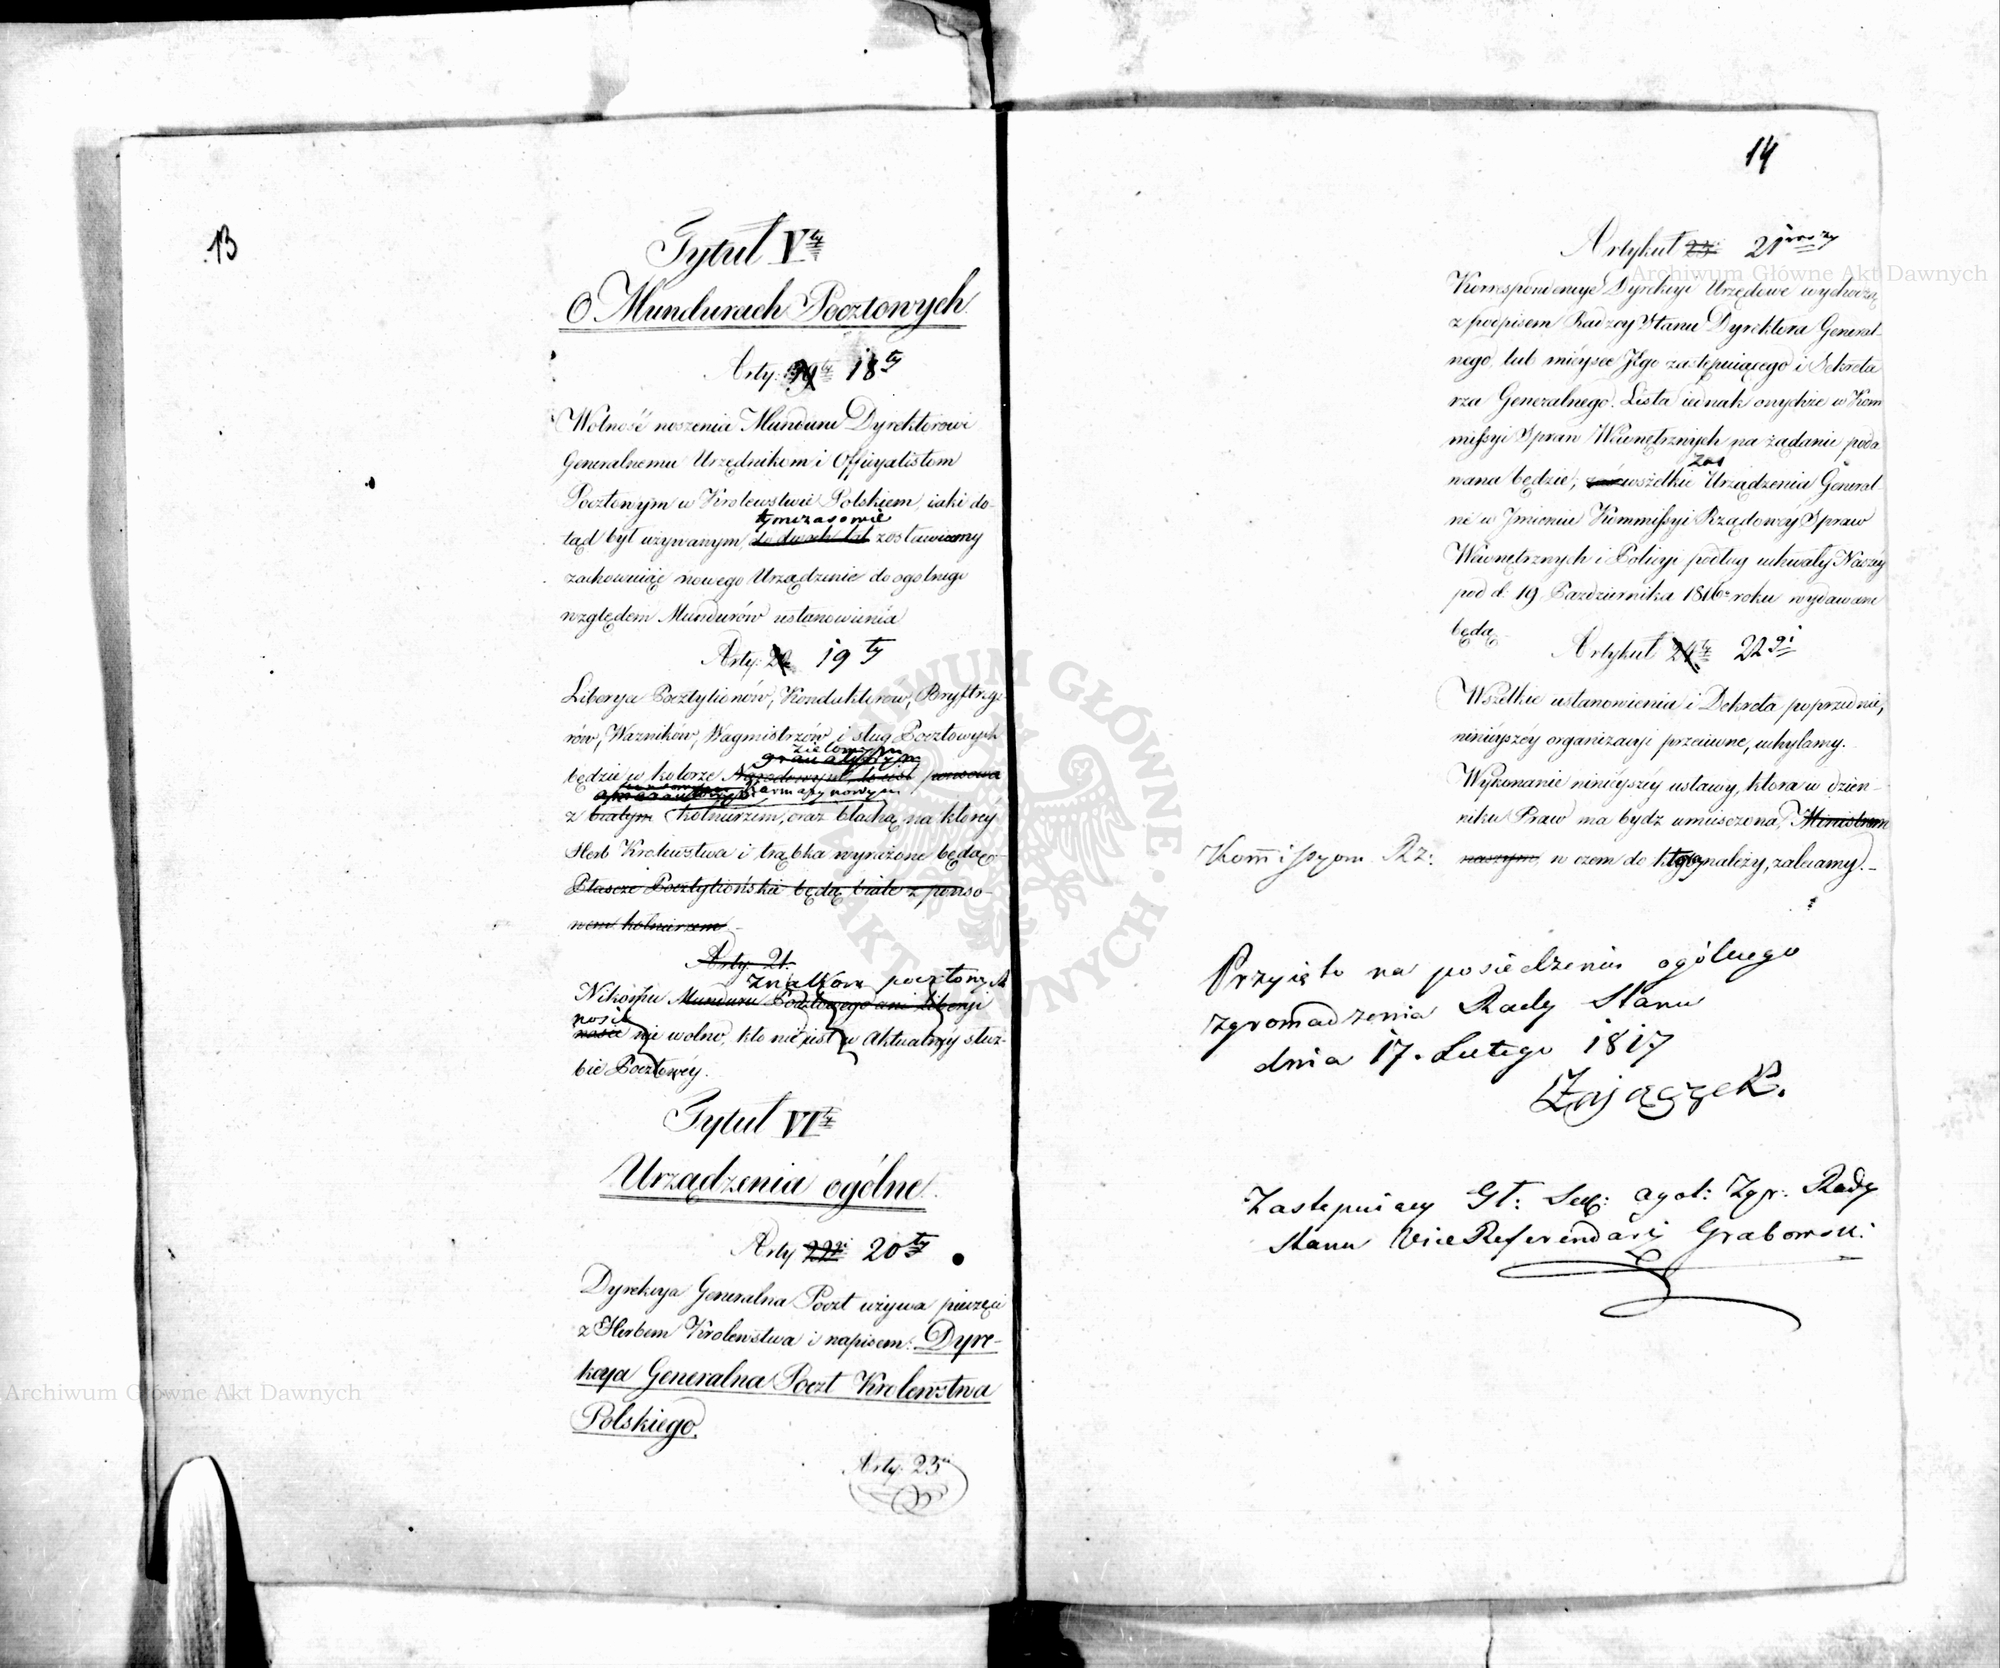 13
Tytuł Vty
O Mundurach Pocztowych.
Arty. 18ty
Wolność noszenia Munduru Dyrektorowi
Generalnemu Urzędnikom i Officyalistom
Pocztowym w Krolewstwie Polskiem, iaki do-
tymczasowie
tąd był używanym, do dwoch lat zostawiamy
zachowuiąc nowego Urządzenie do ogolnego
względem Mundurów ustanowienia
Arty. 19ty
Liberya Pocztylionów, Konduktorow, Bryftrege-
rów, Ważników, Wagmistrzów, i sług Pocztowych
zielonym
granatowym
będzie w kolorze ponsowa
karmazynowym
z białym kołnierzem, oraz blachą, na ktorey
Herb Krolewstwa i trąbka wyrażone będą
Płaszcze Pocztylionskie będą białe z ponso-
wem kołnierzem
Arty. 21.
znakow pocztowych
Nikomu Munduru Pocztowego ani Liberyi
nosić
nosić nie wolno, kto nie iest w Aktualney służ-
bie Pocztowéy.
Tytuł VIty
Urządzenia ogólne.
Arty 22gi 20ty
Dyrekcya Generalna Poczt używa pieczęci
z Herbem Krolewstwa i napisem: Dyre-
kcya Generalna Poczt Krolewstwa
Polskiego.
Arty. 23ci
14
Artykuł 23ci 21wszy
Korrespondencye Dyrekcyi Urzędowe wychodzą
z podpisem Radzcy Stanu Dyrektora General-
nego, lub mieysce Jego zastępuiącego i Sekreta
rza Generalnego. Lista iednak onychże w Kom
missyi Spraw Wewnętrznych na żądanie poda
zas
wana będzie; wszelkie Urządzenia General-
ne w Jmieniu Kommissyi Rządowéy Spraw
Wewnętrznych i Policyi podług uchwały Naszéy
pod d. 19 Pazdziernika 1816o roku wydawane
będą.
Artykuł 24ty 22gi
Wszelkie ustanowienia i Dekreta poprzednie,
ninieyszéy organizacyi przeciwne, uchylamy.
Wykonanie ninieyszey ustawy, ktora w dzien-
niku Praw ma bydz umieszczona, Ministrom
Kommissyom Rz:
naszym, w czem do kogo należy, zalecamy. -
Przyięto na posiedzeniu ogólnego
zgromadzenia Rady Stanu
dnia 17. Lutego 1817
Zajączek.
Zastępuiący Gł: Sek: ogol: Zgr: Rady
Stanu ViceReferendarz Grabowski.
Archiwum Główne Akt Dawnych
Archiwum Główne Akt Dawnych
ARCHIWUM GŁÓWNE AKT DAWNYCH